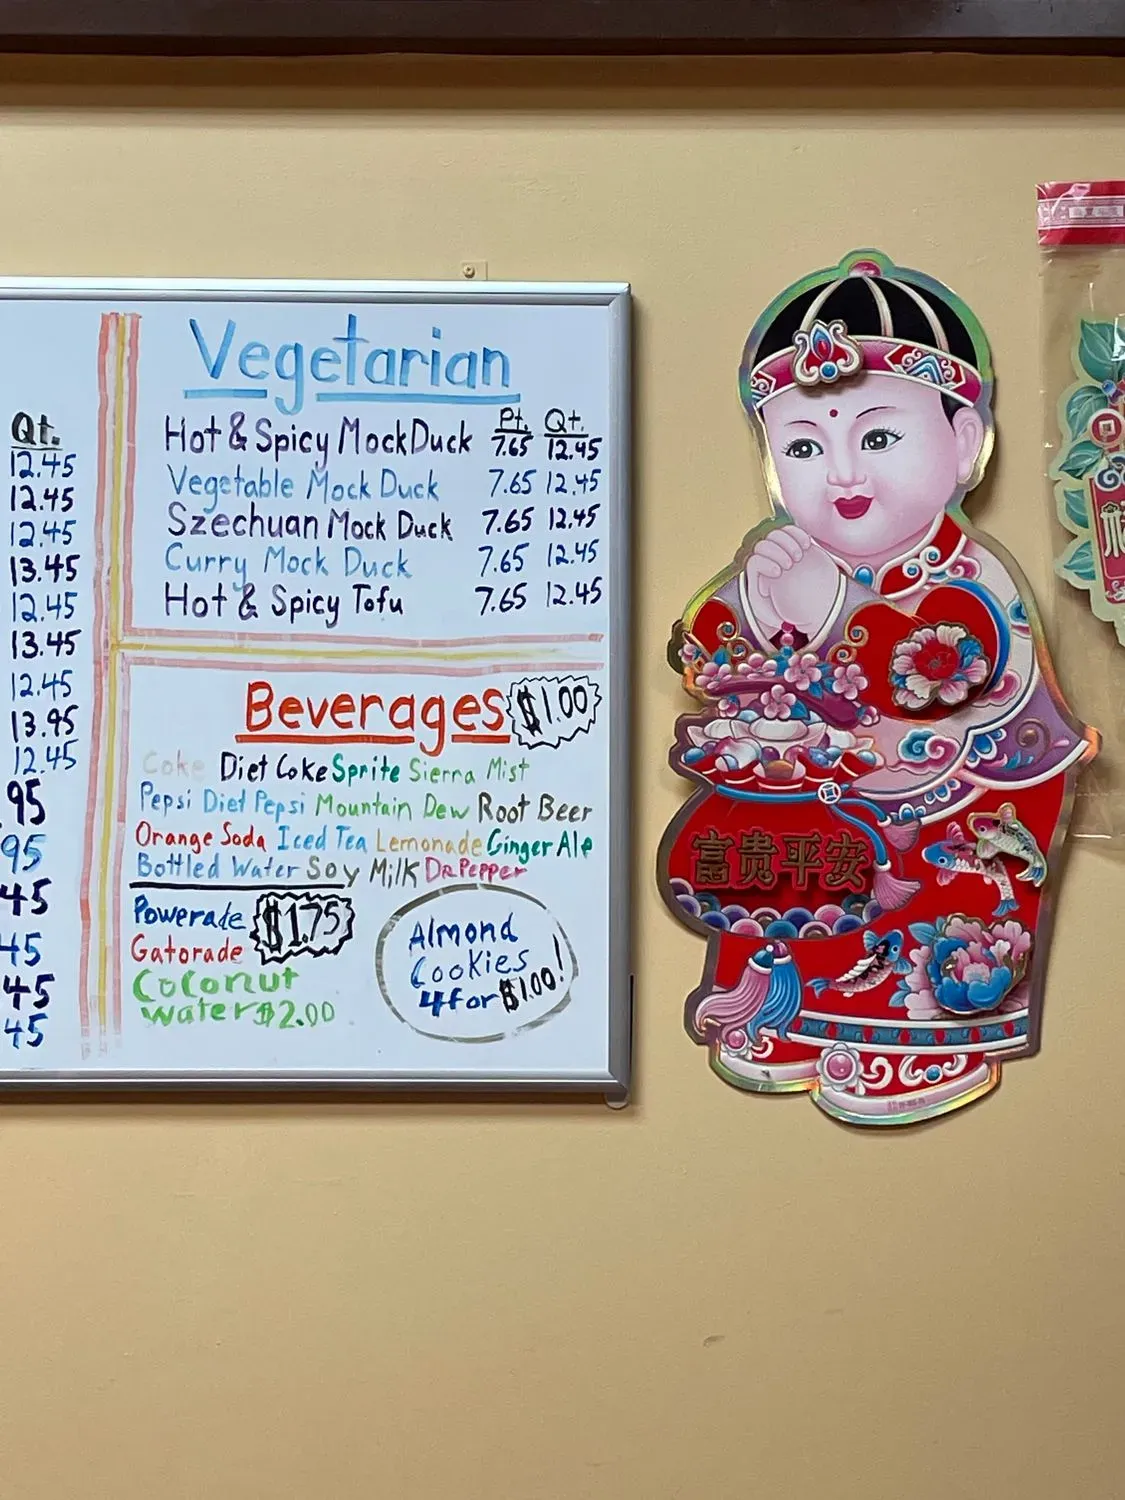 Qt.
12.45
12.45
12.45
13.45
12.45
13.45
12.45
13.95
12.45
.95
95
45
45
45
45
Vegetarian
Pt. Qt.
Hot & Spicy Mock Duck 7.65 12.45
Vegetable Mock Duck 7.65 12.45
Szechuan Mock Duck 7.65 12.45
Curry Mock Duck 7.65 12.45
Hot & Spicy Tofu 7.65 12.45
Beverages $1.00
Coke Diet Coke Sprite Sierra Mist
Pepsi Diet Pepsi Mountain Dew Root Beer
Orange Soda Iced Tea Lemonade Ginger Ale
Bottled Water Soy Milk Dr. Pepper
Powerade $1.75
Gatorade
Coconut
water $2.00
Almond
Cookies
4 for $1.00!
富贵平安